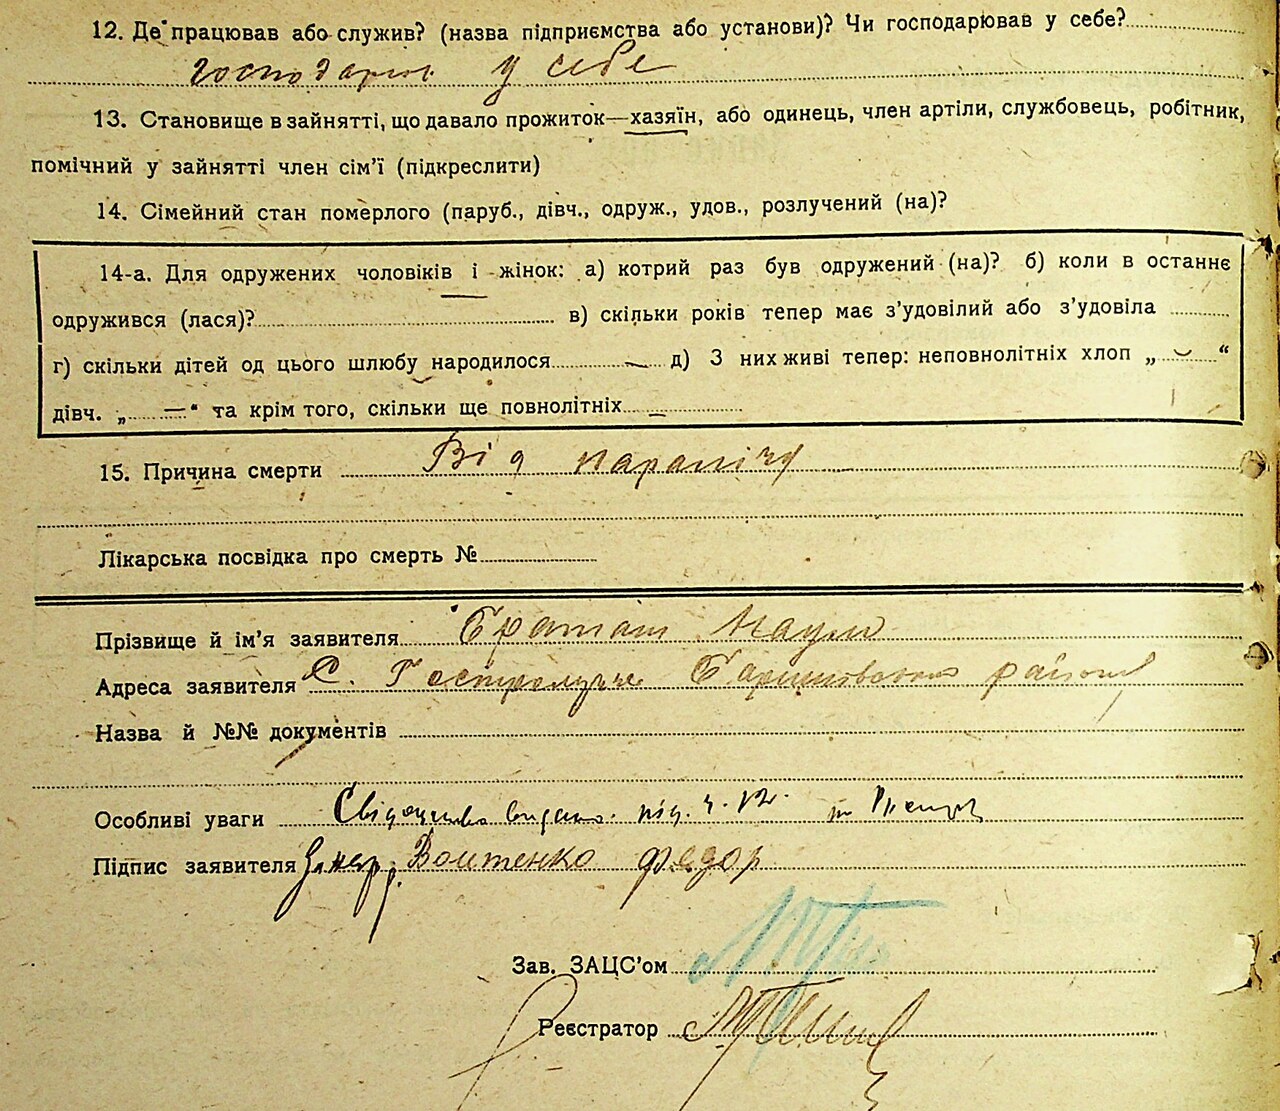 12. Де працював або служив? (назва підприємства або установи)? Чи господарював у себе?
господарив у себе
13. Становище в зайнятті, що давало прожиток—хазяїн, або одинець, член артіли, службовець, робітник,
помічний у зайнятті член сім'ї (підкреслити)
14. Сімейний стан померлого (паруб., дівч., одруж., удов., розлучений (на)?
14-а. Для одружених чоловіків і жінок: а) котрий раз був одружений (на)? б) коли в останнє
одружився (лася)? в) скільки років тепер має з'удовілий або з'удовіла
г) скільки дітей од цього шлюбу народилося — д) З них живі тепер: неповнолітніх хлоп „ — “
дівч. „ — “ та крім того, скільки ще повнолітніх —
15. Причина смерти Від паралічу
Лікарська посвідка про смерть №
Прізвище й ім'я заявителя Браташ Наум
Адреса заявителя С. Гостролуччє Баришовського району
Назва й №№ документів
Особливі уваги Свідоцтво видано під ч. 12
Підпис заявителя Войтенко Федор
Зав. ЗАЦС'ом
Реєстратор